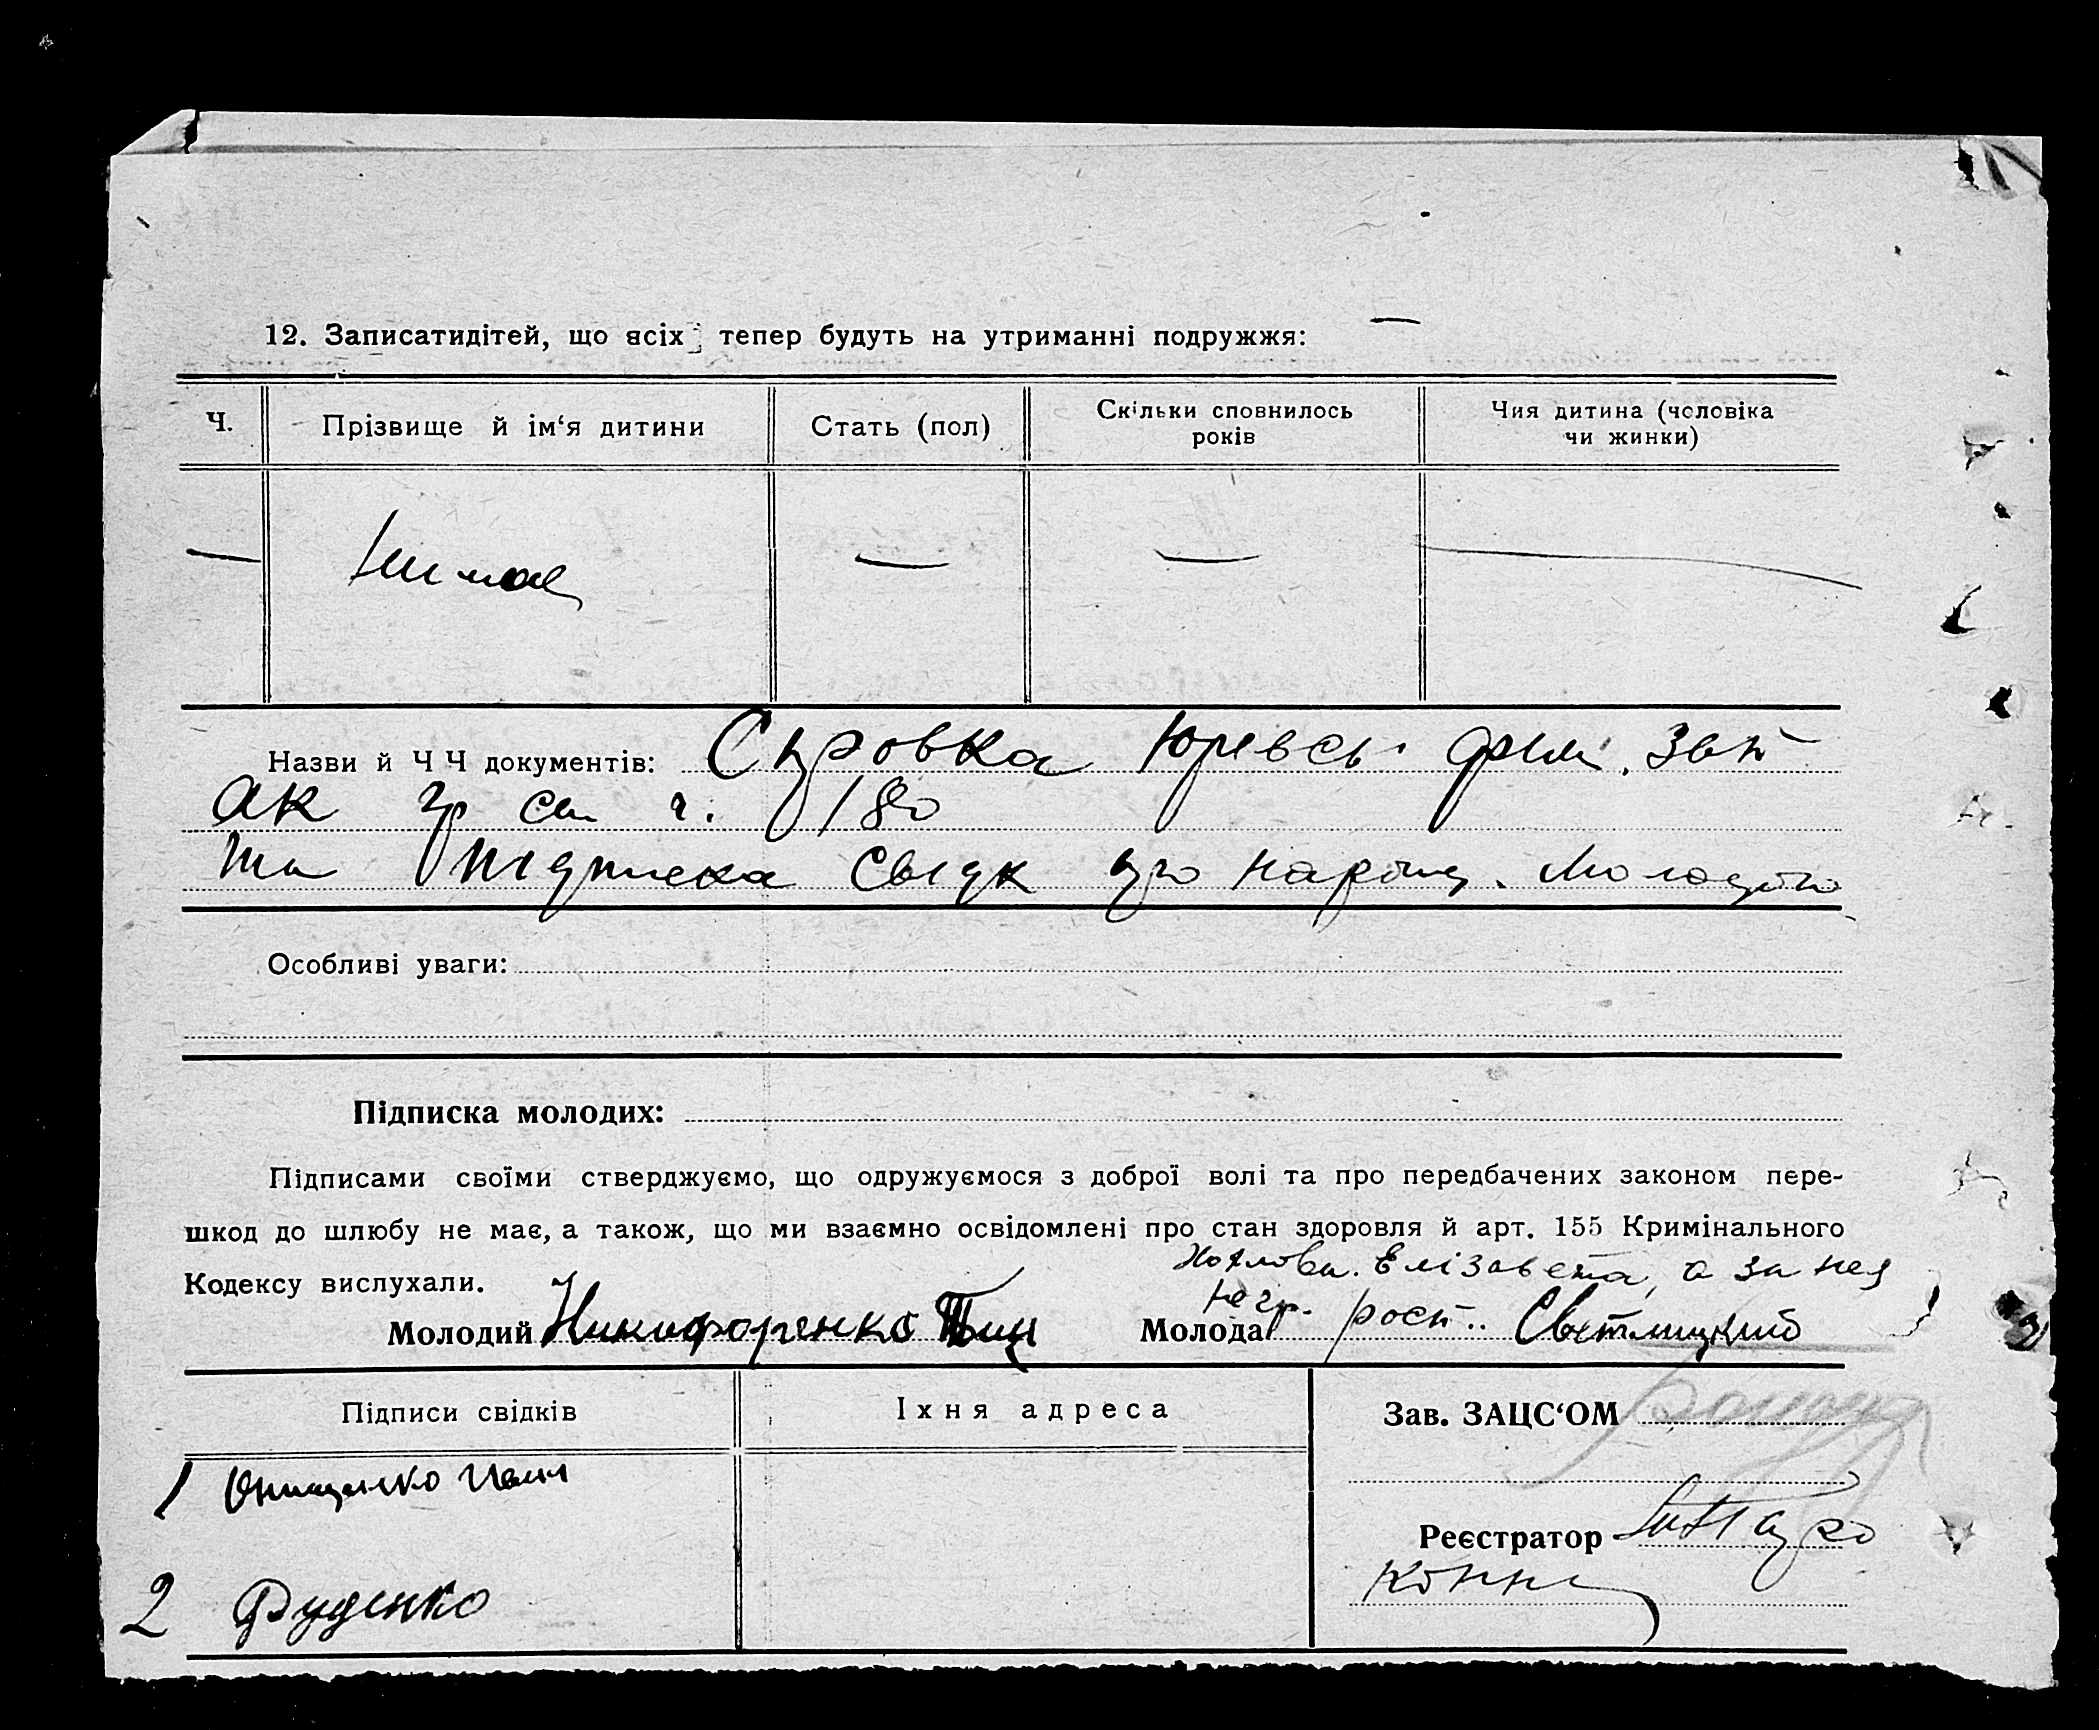 12. Записатидітей, що всіх тепер будуть на утриманні подружжя: —
Ч. Прізвище й ім‘я дитини Стать (пол) Скільки сповнилось років Чия дитина (чоловіка чи жинки)
— Нимає — — —
Назви й Ч Ч документів: Справка Юрєвсь
ак гр ст ч. 180
та підписка свідк про нарощ. Молодого
Особливі уваги:
Підписка молодих:
Підписами своїми стверджуємо, що одружуємося з доброї волі та про передбачених законом пере-
шкод до шлюбу не має, а також, що ми взаємно освідомлені про стан здоровля й арт. 155 Кримінального
Кодексу вислухали.
Єлізавета, а за нея
Молодий Никифоренко Молода негр. росп. Светлицкий
Підписи свідків Їхня адреса Зав. ЗАЦС‘ОМ
1 Онищенко Иван
Реєстратор
2 Руденко